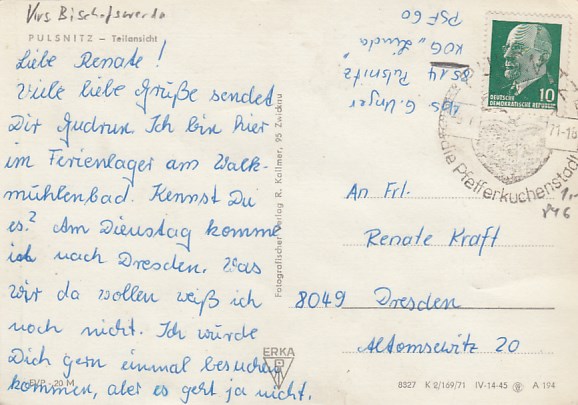 Krs Bischofswerda
PULSNITZ – Teilansicht
Liebe Renate!
Viele liebe Grüße sendet
Dir Gudrun. Ich bin hier
im Ferienlager am Walk-
mühlenbad. Kennst Du
es? Am Dienstag komme
ich nach Dresden. Was
wir da wollen weiß ich
noch nicht. Ich würde
Dich gern einmal besuchen
kommen, aber es geht ja nicht.
EVP – 20 M
Fotografischer Verlag R. Kallmer, 95 Zwickau
ERKA
Abs G. Unger
8514 Pulsnitz
KOG „Linda"
PSF 60
10
DEUTSCHE
DEMOKRATISCHE REPUBLIK
71-18
die Pfefferkuchenstadt
1,-
816
An Frl.
Renate Kraft
8049 Dresden
Altomsewitz 20
8327 K 2/169/71 IV-14-45 A 194